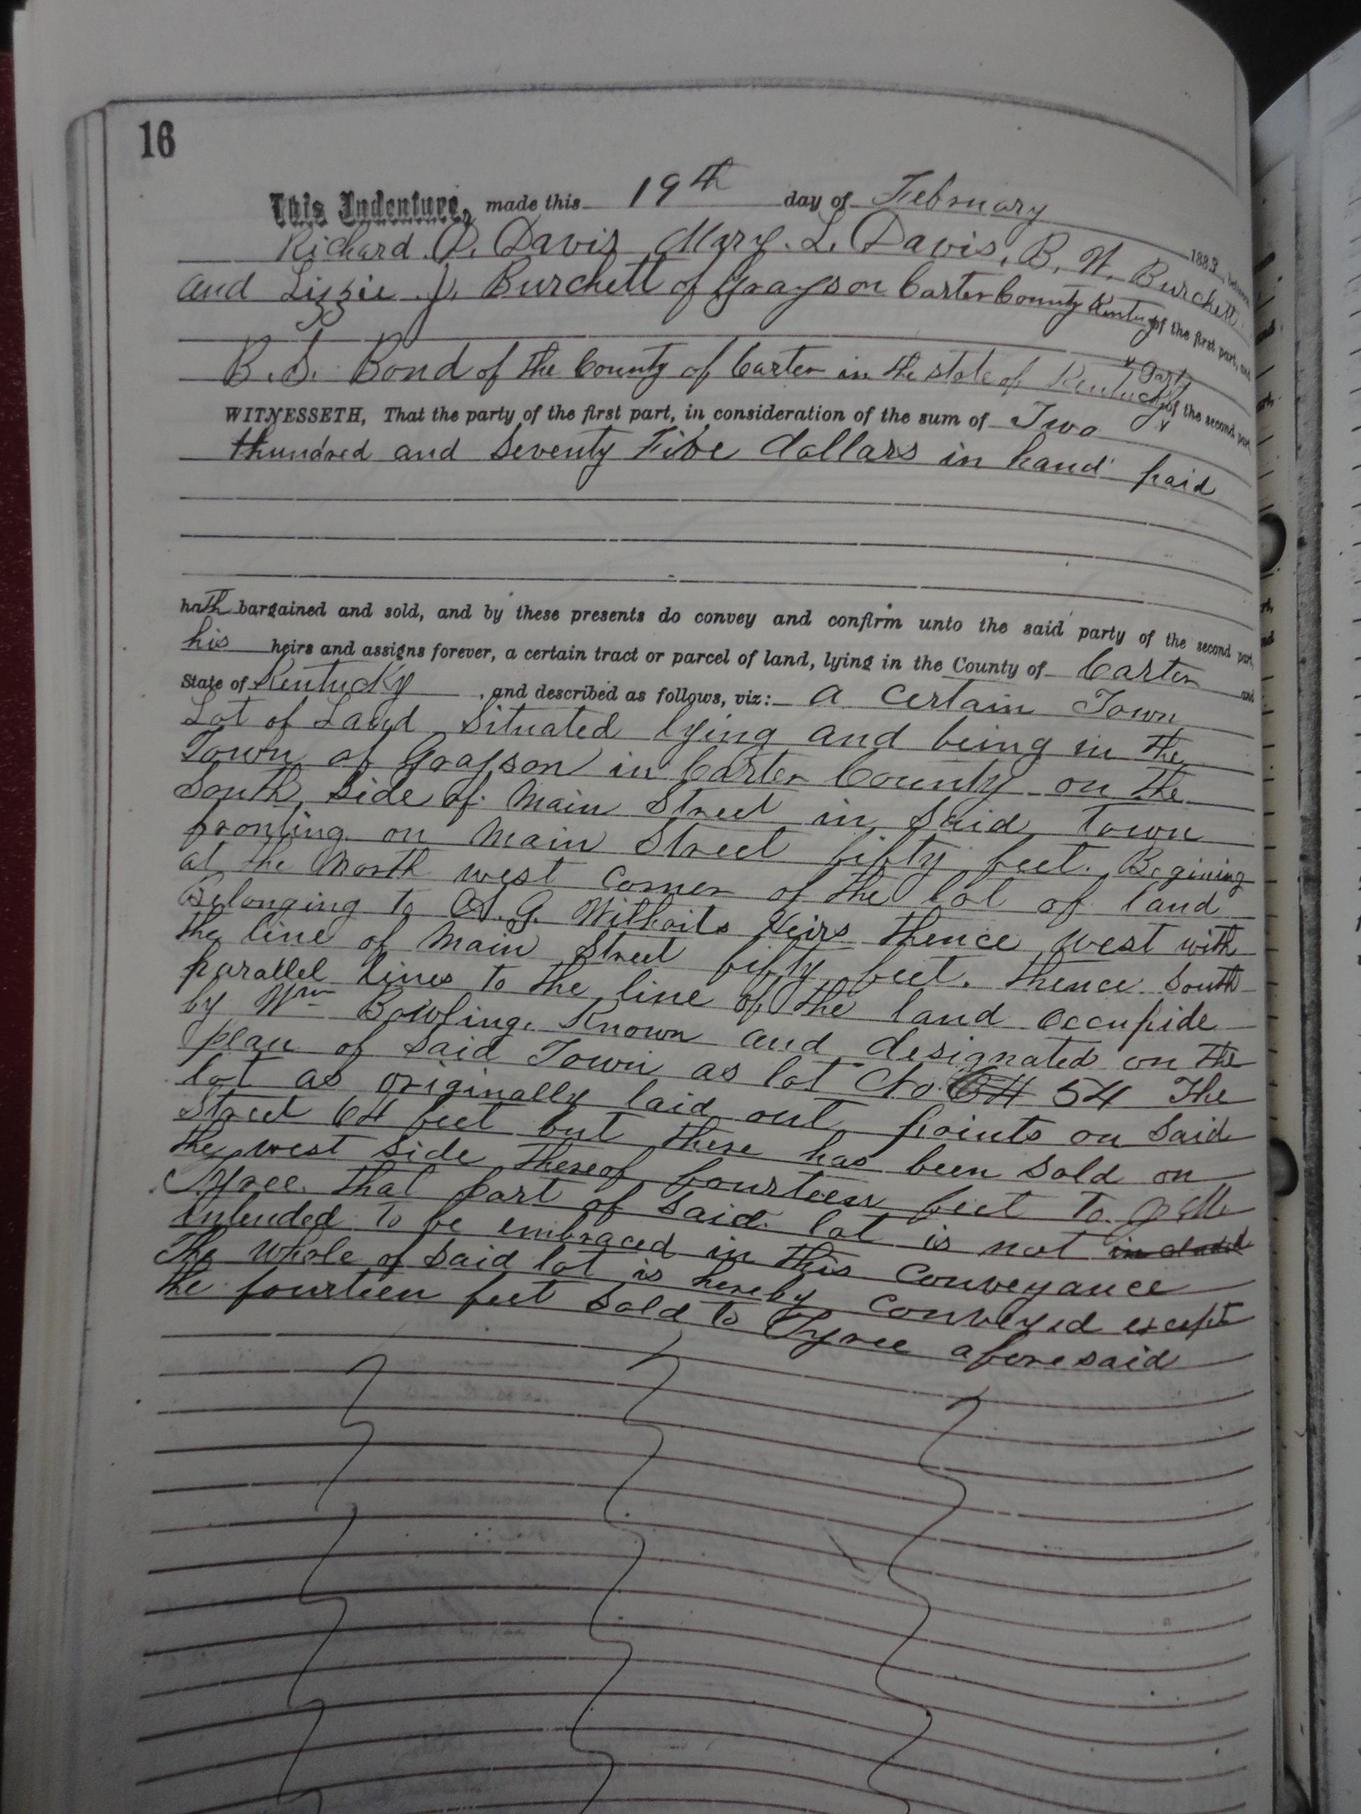 16
This Indenture, made this 19th day of February 1883, between
Richard D. Davis Mary. L. Davis, B. W. Burchett
and Lizzie J. Burchett of Grayson Carter County Kentucky of the first part, and
B. S. Bond of the County of Carter in the state of Kentucky party of the second part
WITNESSETH, That the party of the first part, in consideration of the sum of Two
hundred and Seventy Five dollars in hand paid
hath bargained and sold, and by these presents do convey and confirm unto the said party of the second part,
his heirs and assigns forever, a certain tract or parcel of land, lying in the County of Carter and
State of Kentucky, and described as follows, viz: a certain Town
Lot of Land Situated lying and being in the
Town of Grayson in Carter County on the
South side of Main Street in Said Town
fronting on Main Street fifty feet. Begining
at the North west corner of the lot of land
Belonging to A. G. Wilhoits Heirs thence west with
the line of Main Street fifty feet. thence South
parallel lines to the line of the land occupide
by Wm Bowling. Known and designated on the
plan of said Town as lot No 64 54 The
lot as originally laid out points on said
Street 64 feet but there has been sold on
the west side thereof fourteen feet to
Tyree that part of said lot is not included
intended to be embraced in this conveyance
The whole of said lot is hereby conveyed except
the fourteen feet sold to Tyree aforesaid